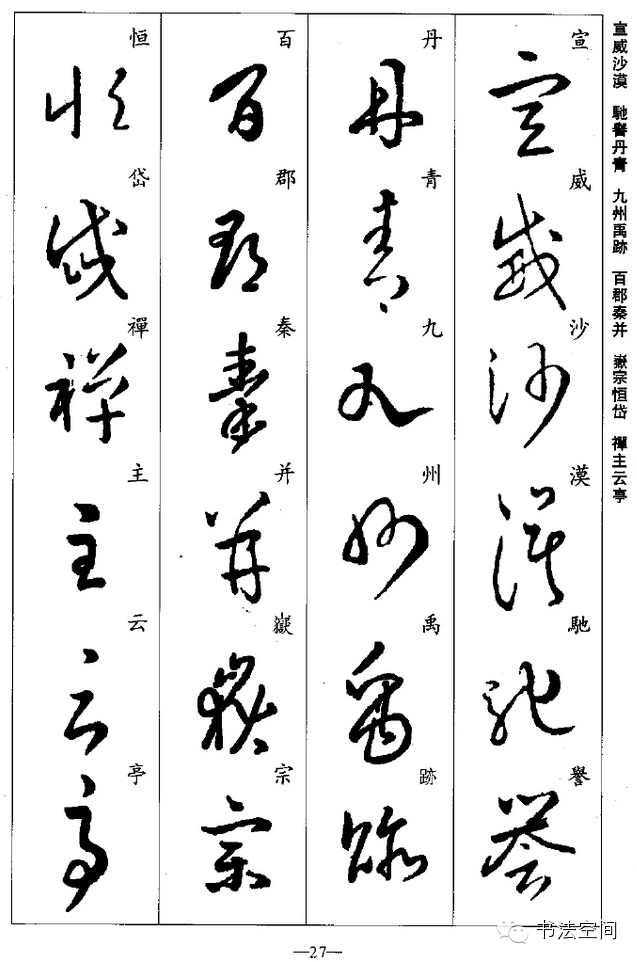 宣威沙漠 馳譽丹青 九州禹跡 百郡秦并 嶽宗恒岱 禪主云亭
宣威沙漠馳譽
丹青九州禹跡
百郡秦并嶽宗
恒岱禪主云亭
—27—
书法空间